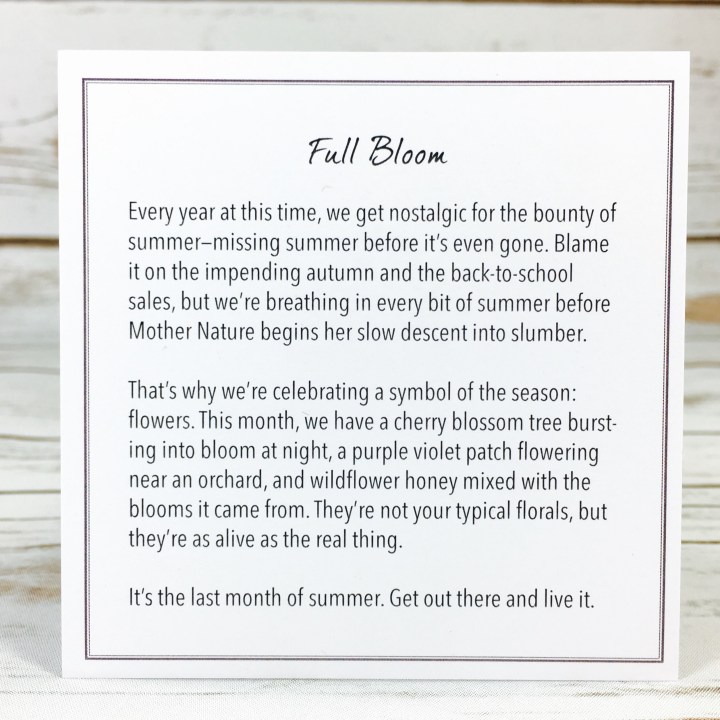 Full Bloom
Every year at this time, we get nostalgic for the bounty of
summer–missing summer before it's even gone. Blame
it on the impending autumn and the back-to-school
sales, but we're breathing in every bit of summer before
Mother Nature begins her slow descent into slumber.
That's why we're celebrating a symbol of the season:
flowers. This month, we have a cherry blossom tree burst-
ing into bloom at night, a purple violet patch flowering
near an orchard, and wildflower honey mixed with the
blooms it came from. They're not your typical florals, but
they're as alive as the real thing.
It's the last month of summer. Get out there and live it.